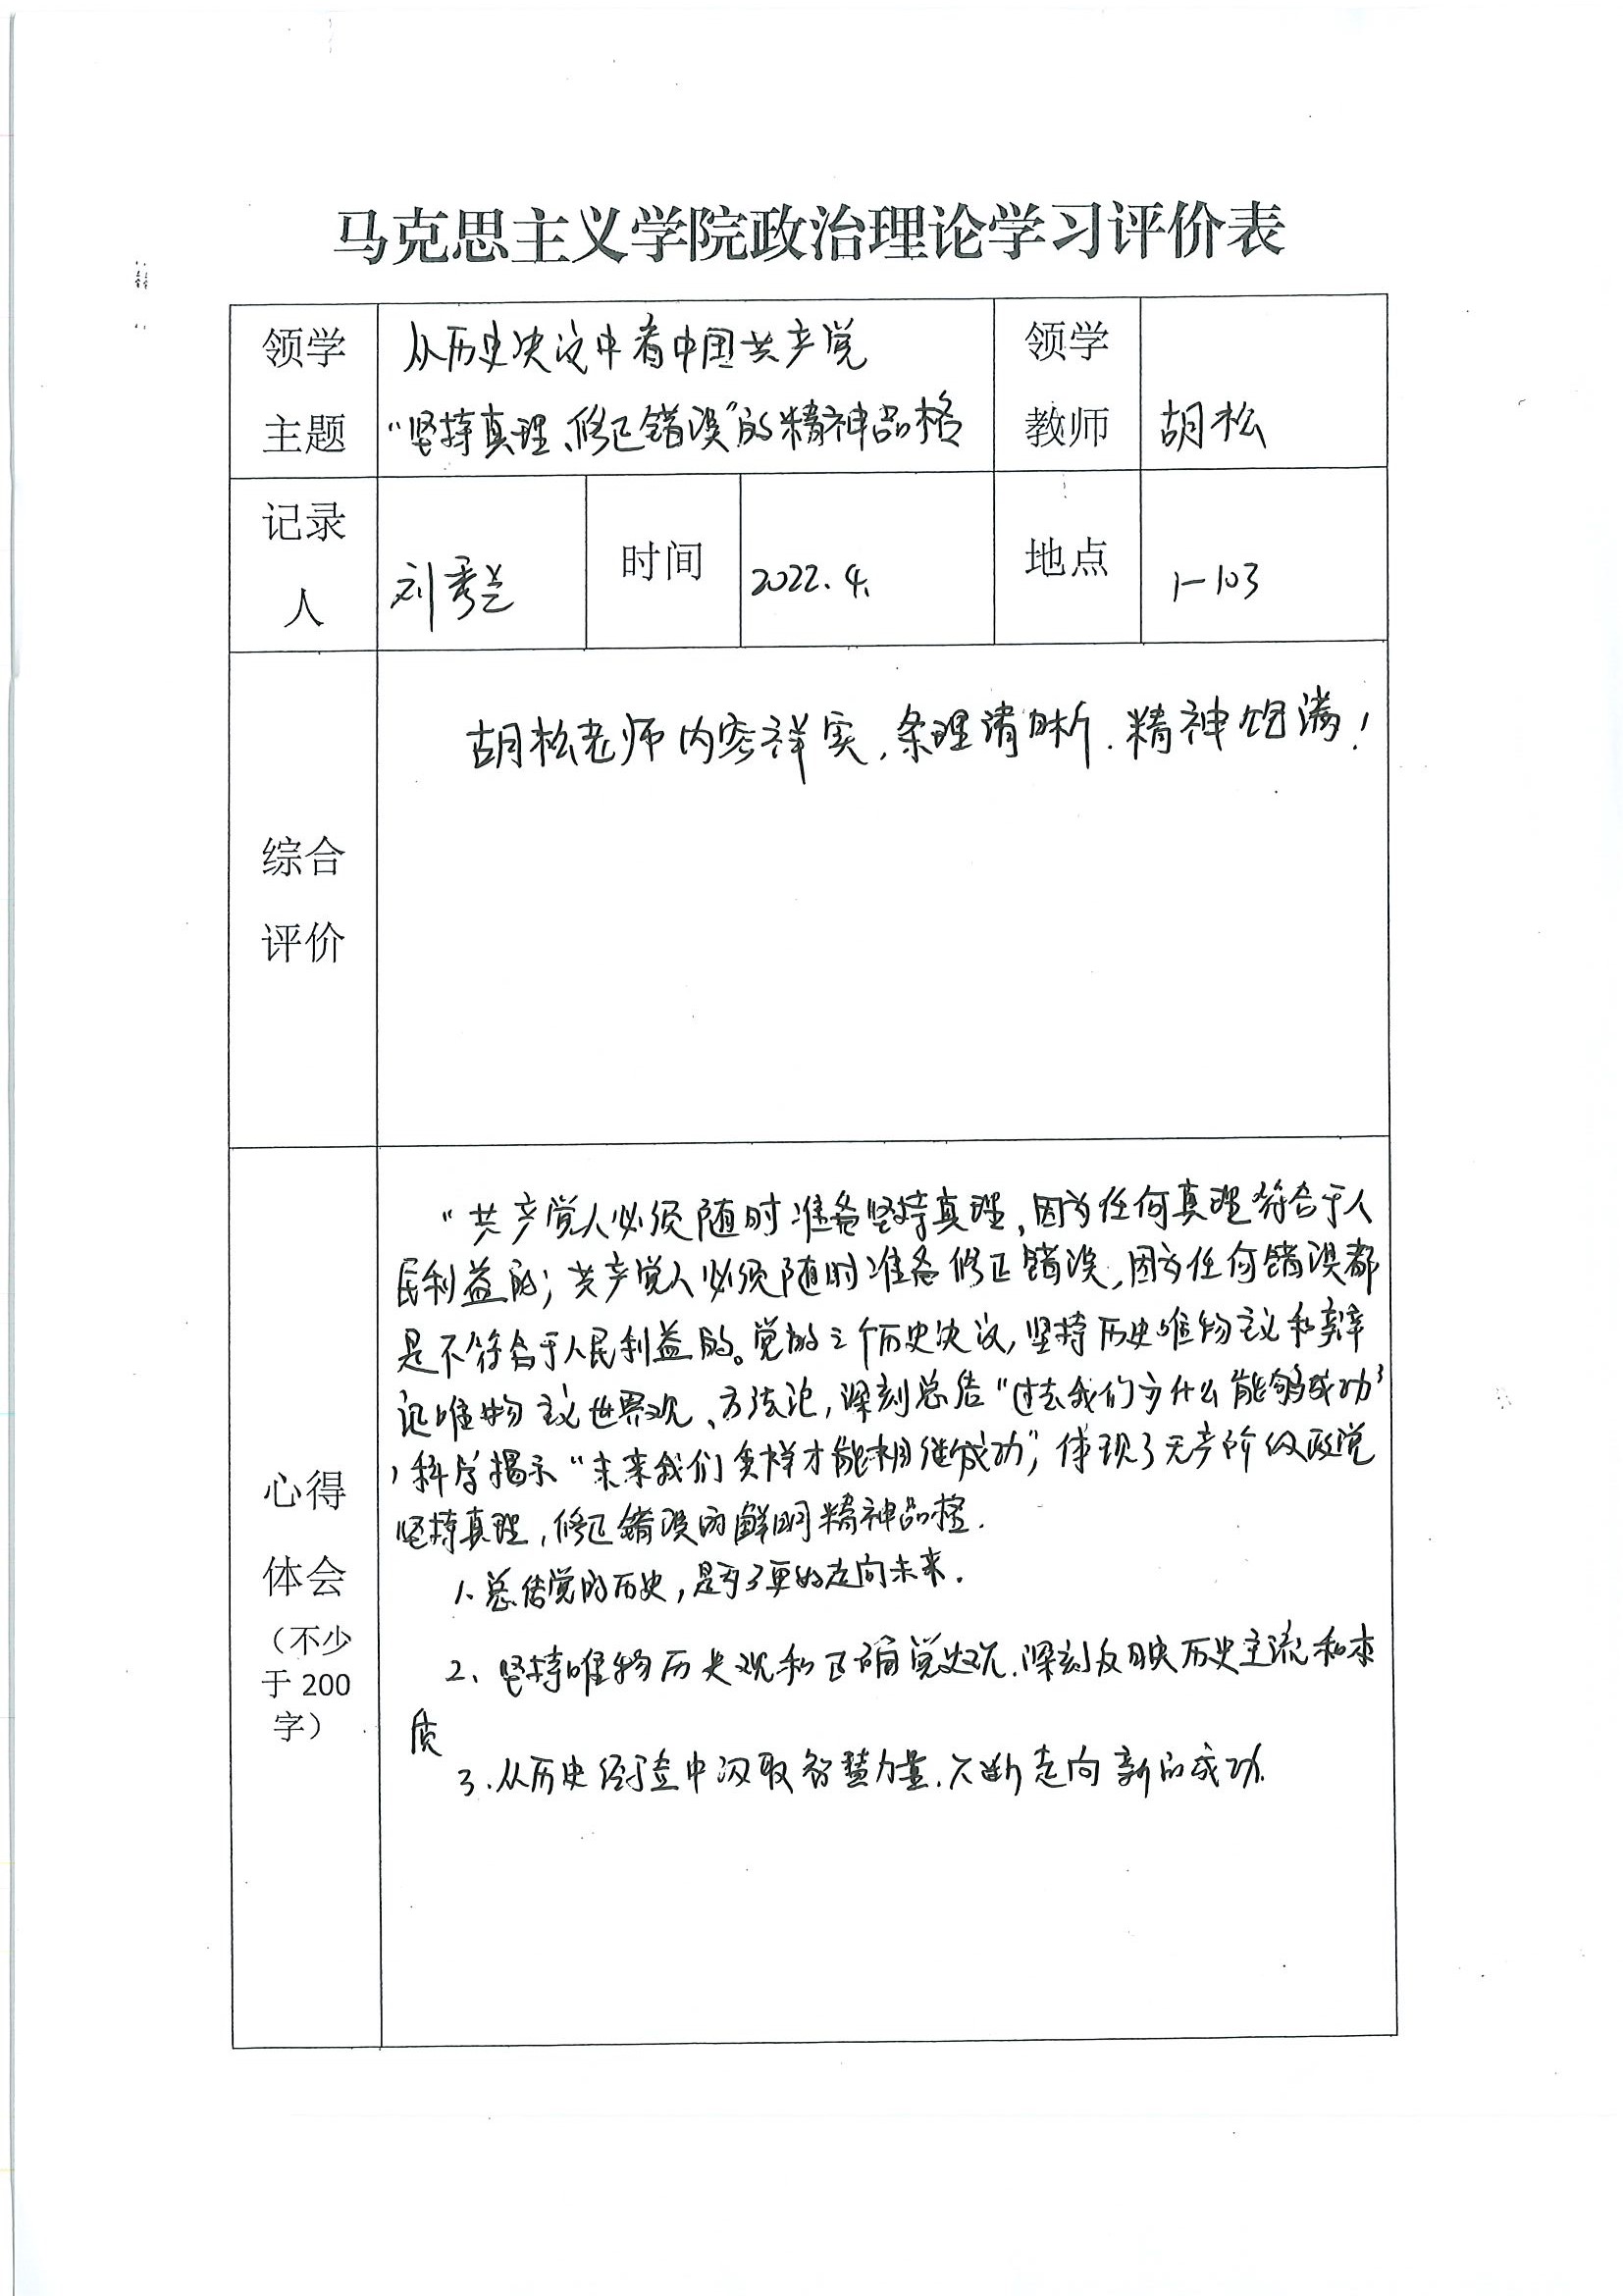 马克思主义学院政治理论学习评价表
领学
主题
从历史决议中看中国共产党
“坚持真理、修正错误”的精神品格
领学
教师
胡松
记录
人
刘秀兰
时间
2022.4.
地点
1-103
综合
评价
胡松老师内容祥实,条理清晰.精神饱满!
心得
体会
（不少
于 200
字）
“共产党人必须随时准备坚持真理,因为任何真理符合于人
民利益的;共产党人必须随时准备修正错误,因为任何错误都
是不符合于人民利益的。党的三个历史决议,坚持历史唯物主义和辩
证唯物主义世界观、方法论,深刻总结“过去我们为什么能够成功”
,科学揭示“未来我们怎样才能继成功”,体现了无产阶级政党
坚持真理,修正错误的鲜明精神品格.
1.总结党的历史,是为了更好走向未来.
2、坚持唯物历史观和正确党史观.深刻反映历史主流和本
质
3.从历史经验中汲取智慧力量.不断走向新的成功.